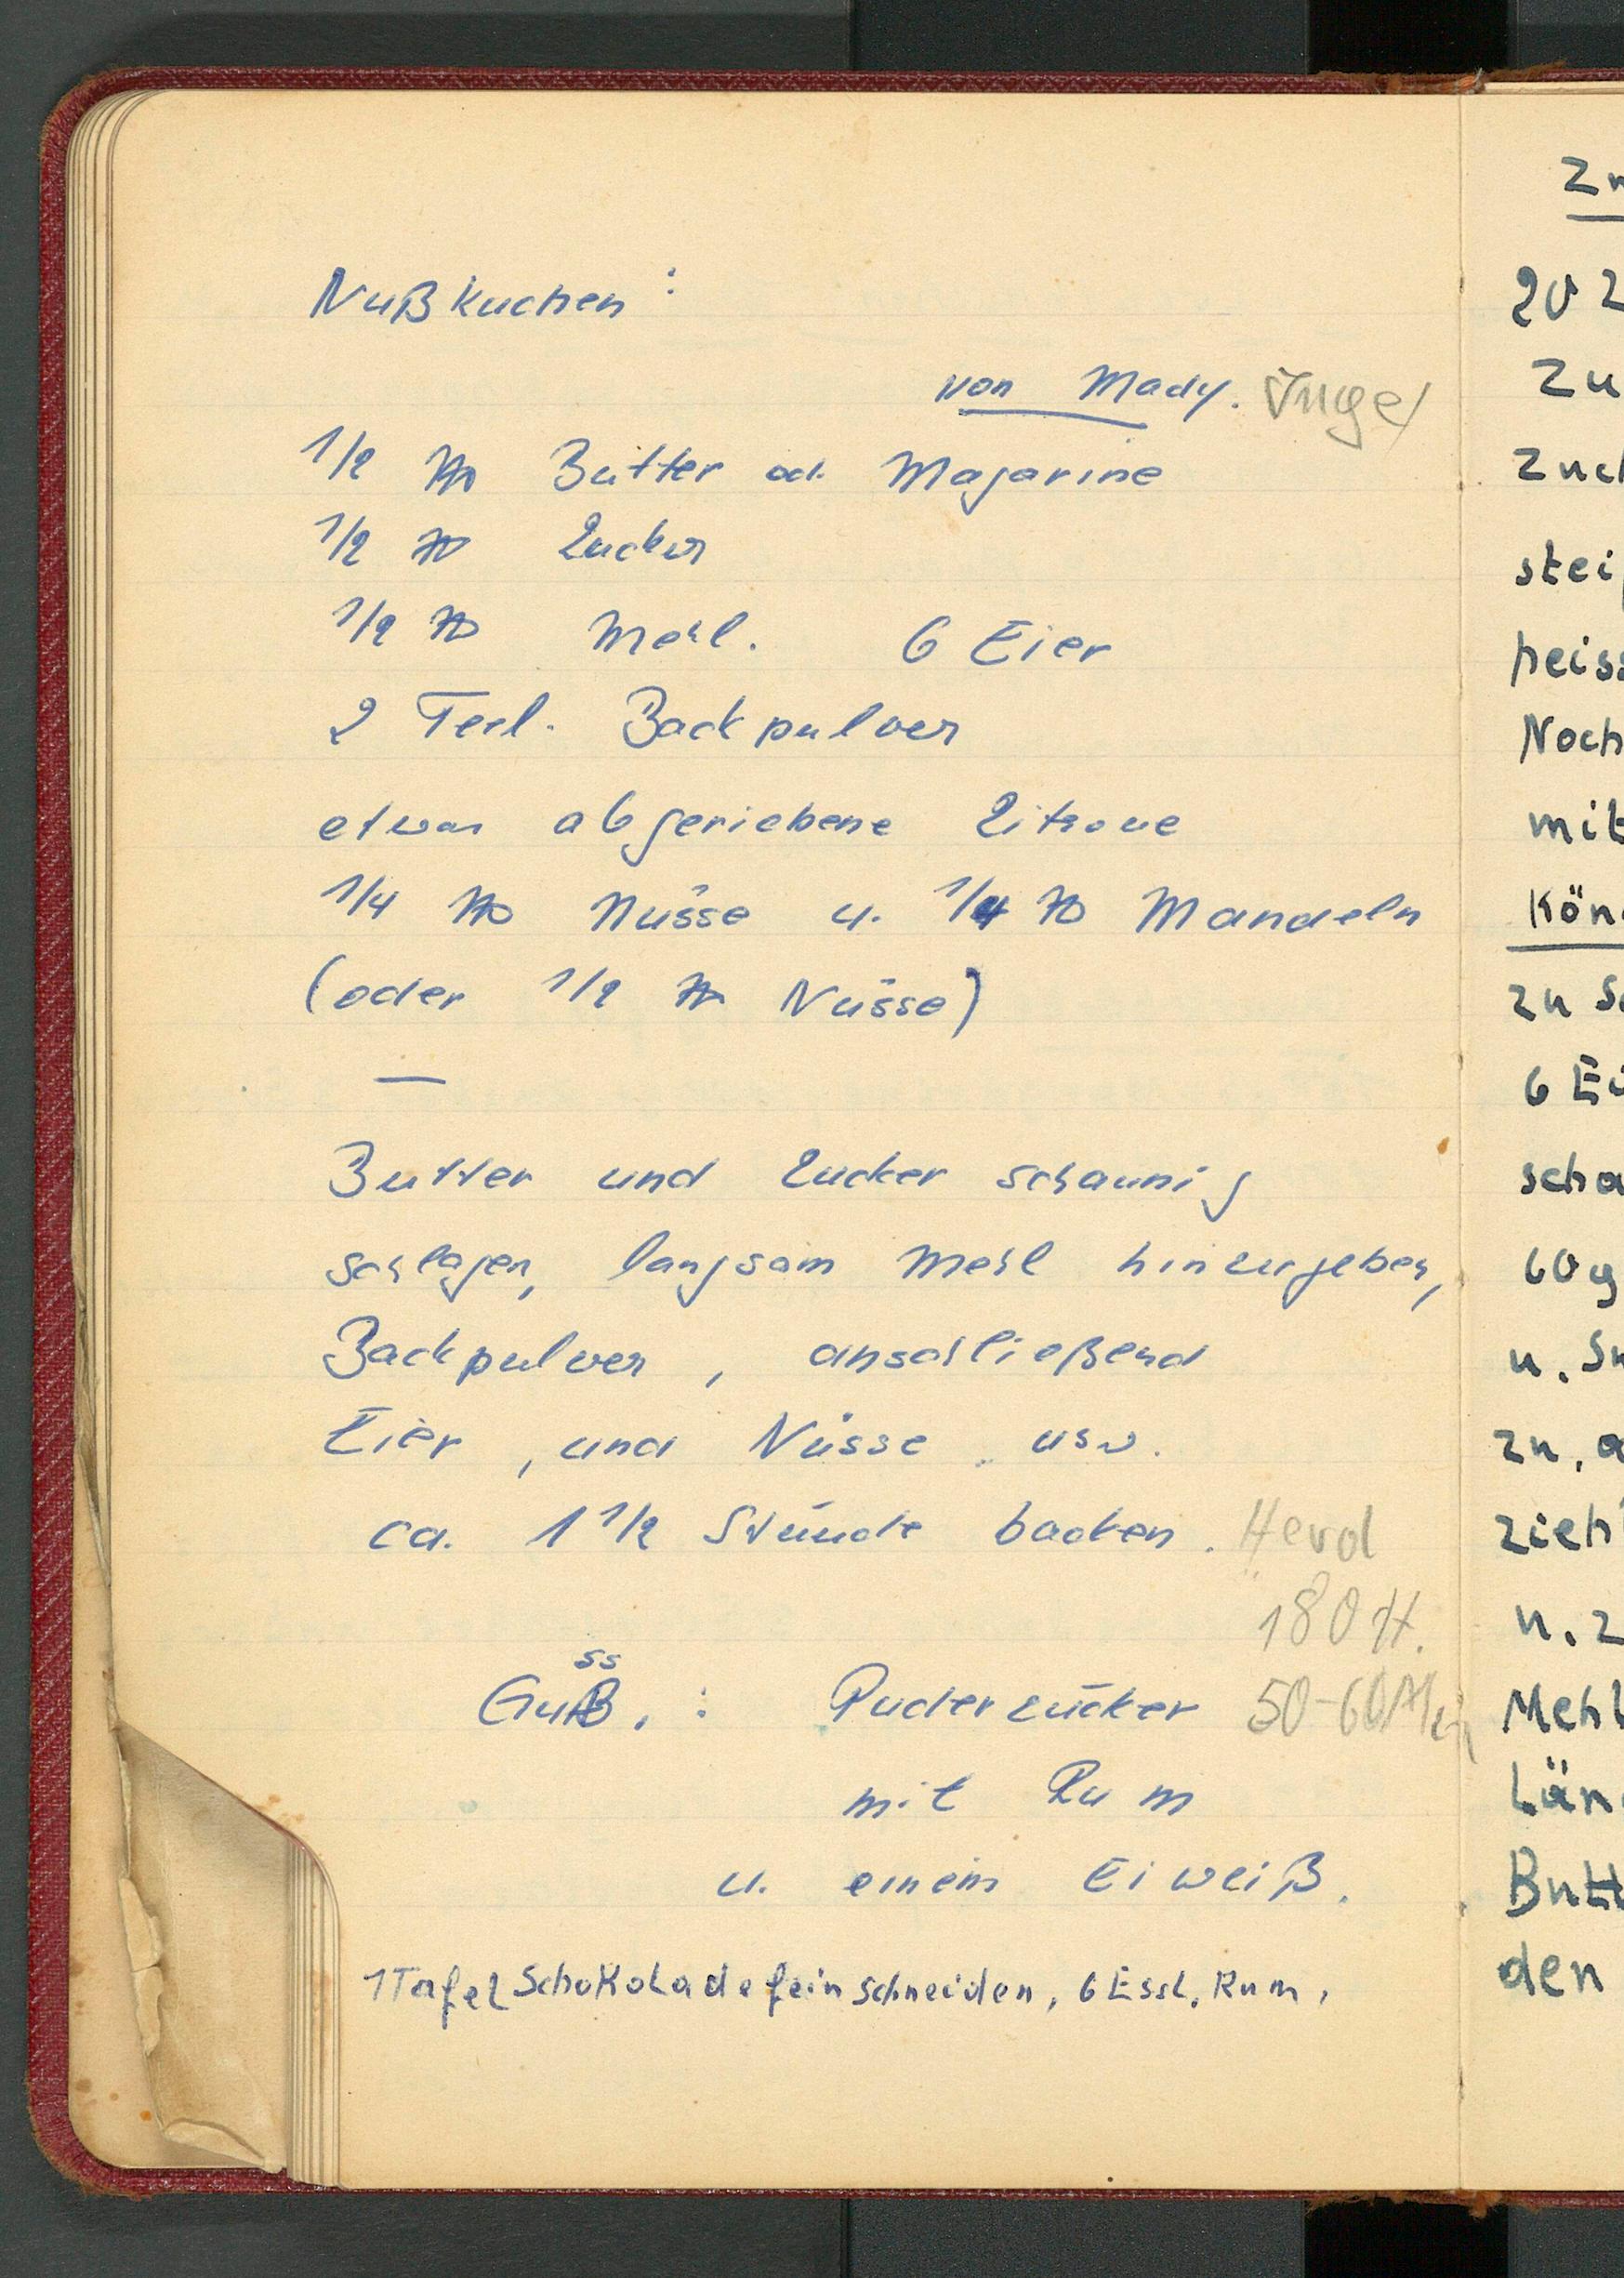 Nußkuchen:
von Mady. Inge
1/2 ℔ Butter od. Magarine
1/2 ℔ Zucker
1/2 ℔ Mehl. 6 Eier
2 Teel. Backpulver
etwas abgeriebene Zitrone
1/4 ℔ Nüsse u. 1/4 ℔ Mandeln
(oder 1/2 ℔ Nüsse)
—
Butter und Zucker schaumig
schlagen, langsam Mehl hinzugeben,
Backpulver, anschließend
Eier, und Nüsse usw.
ca. 1 1/2 Stunde backen. Herd
180 H.
ss
Guß. : Puderzucker 50-60 Min
mit Rum
u. einem Eiweiß.
1 Tafel Schokolade fein schneiden, 6 Essl. Rum,
20
Zu
stei
heiss
Noch
mit
Kön
zu
6 Ei
scha
60g
u.
zu,
zieh
u. z
Mehl
Län
Butt
den